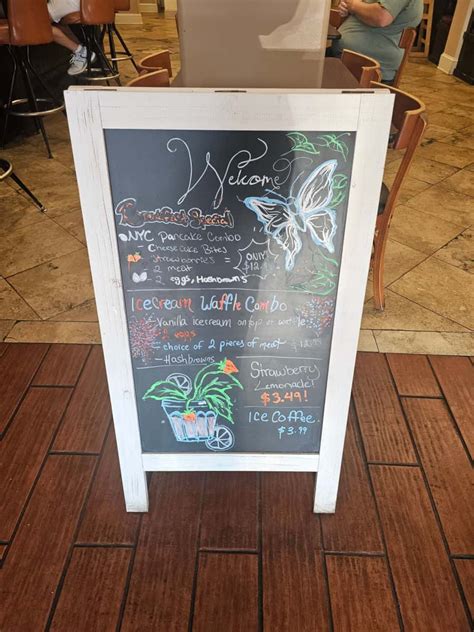 Welcome
Breakfast Special
NYC Pancake Combo
- Cheesecake Bites
- Strawberries
- 2 meat
- 2 eggs, Hashbrowns
=
ONLY
Icecream Waffle Combo
- Vanilla icecream on top of waffle
- 2 eggs
- choice of 2 pieces of meat
- Hashbrowns
Strawberry
Lemonade!
$3.49!
Ice Coffee.
$3.99